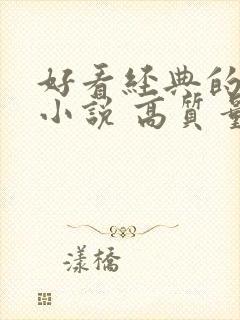 好看經典的
小說 高質量
漾橋